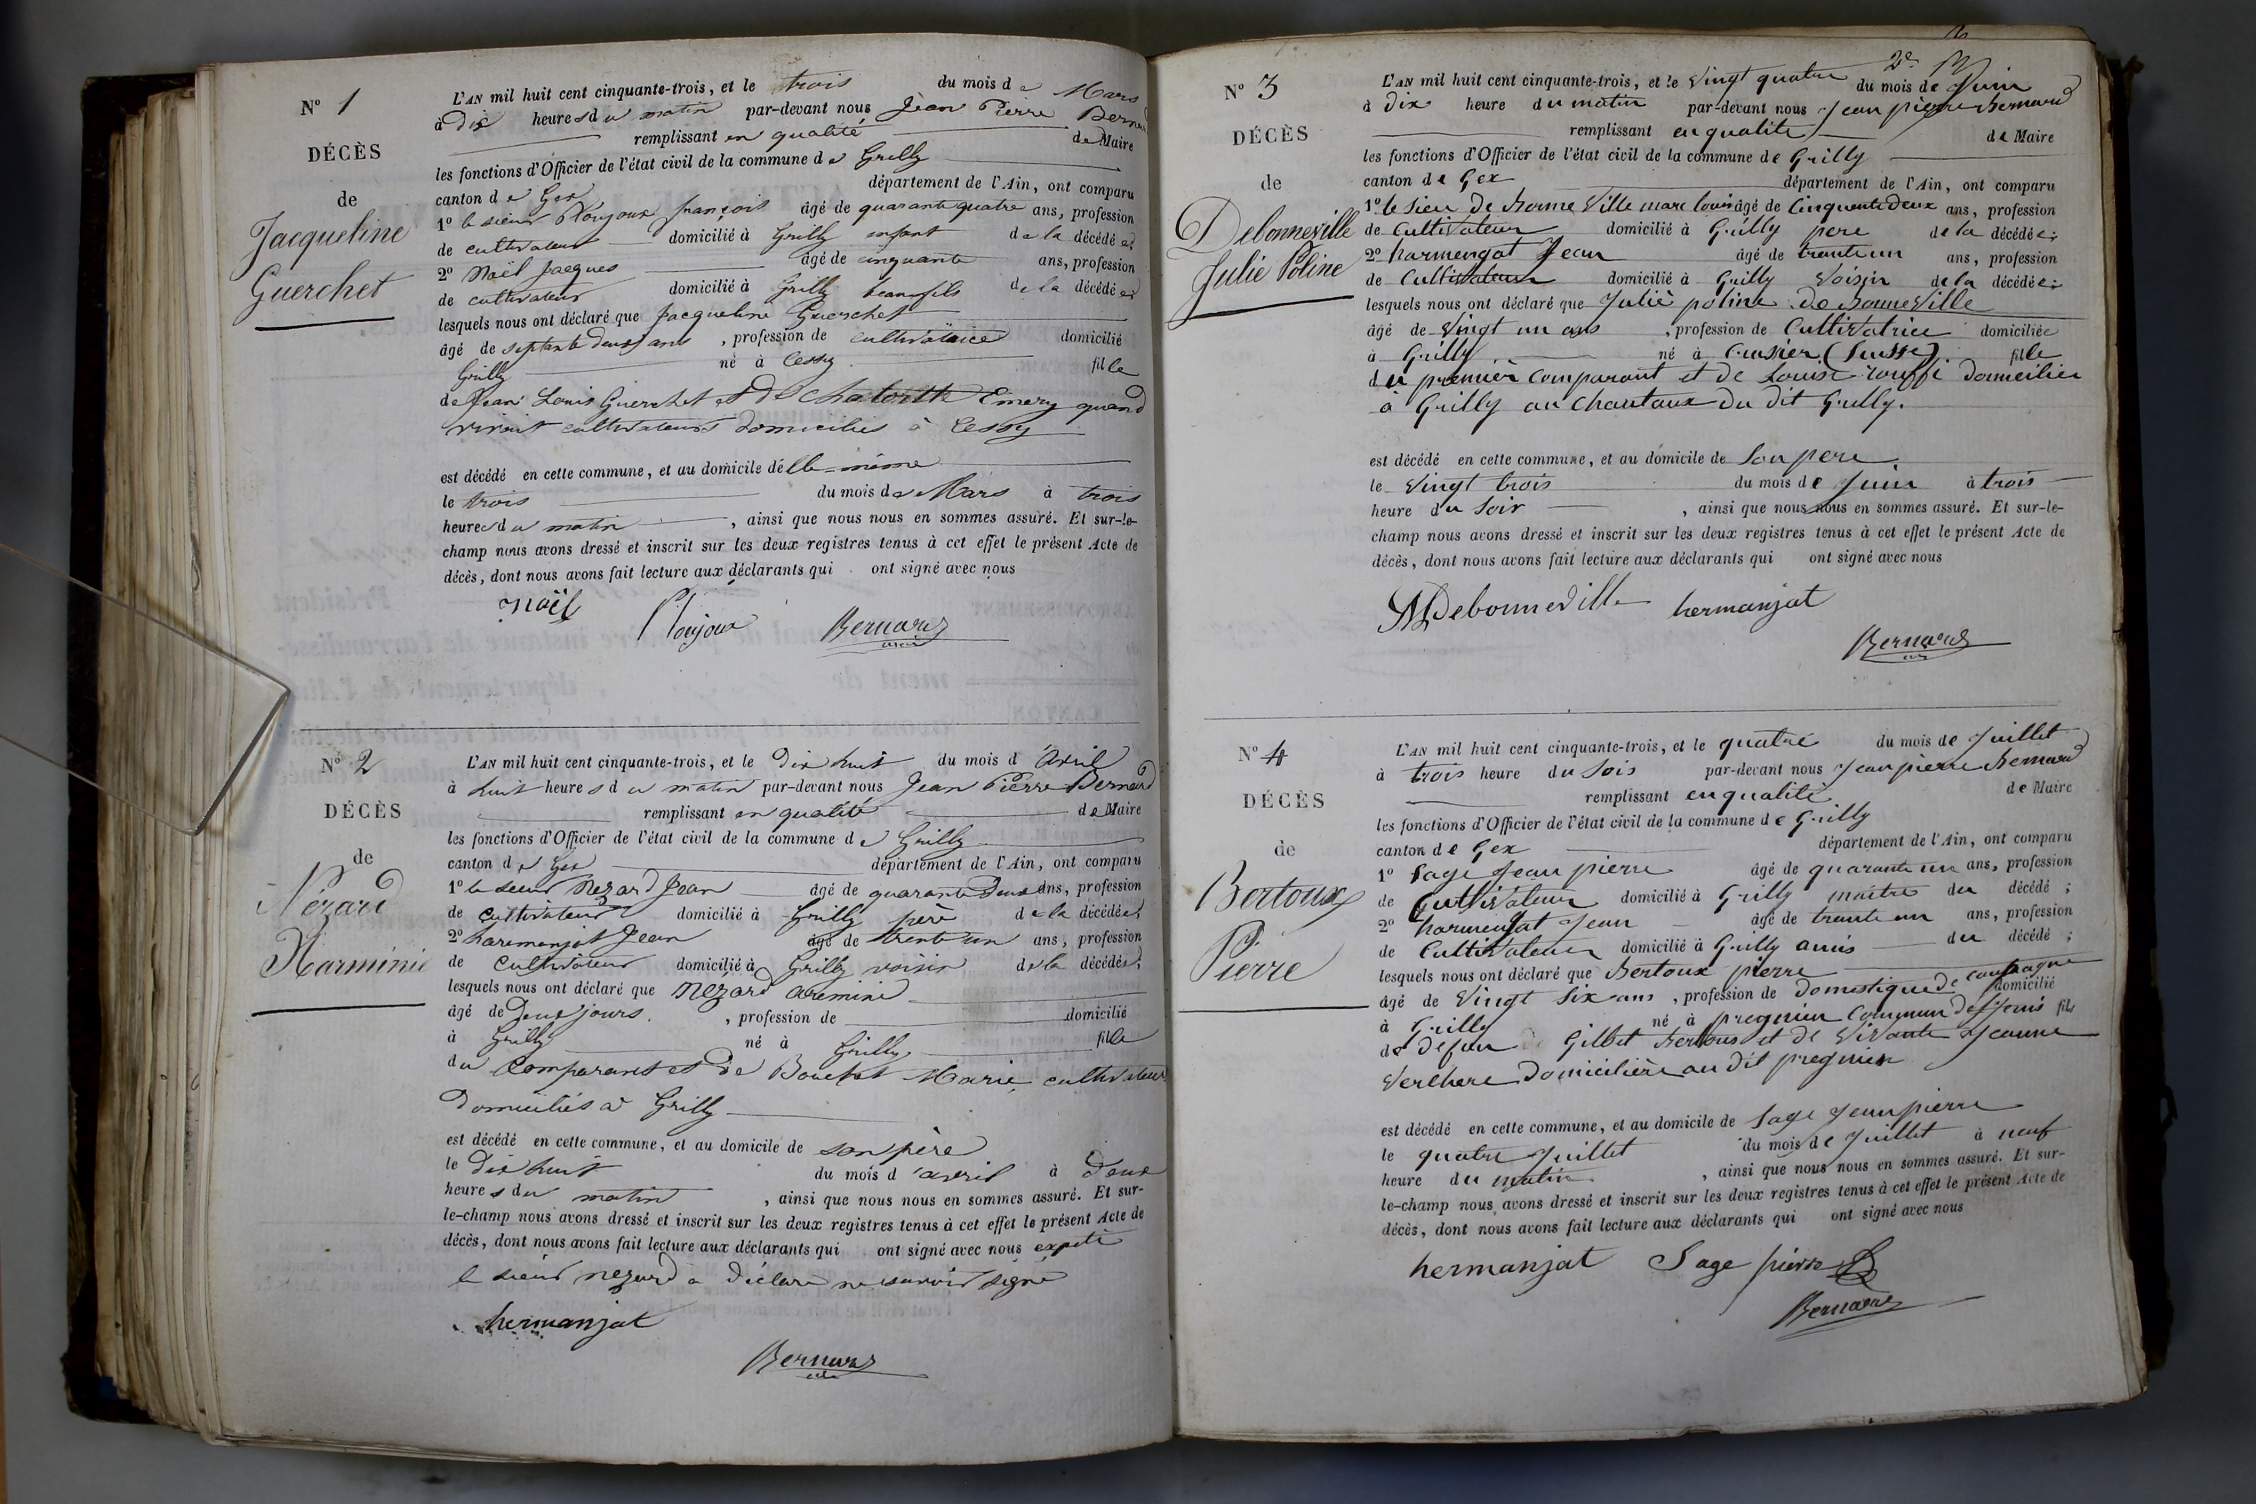 N° 1
DÉCÈS
de
Jacqueline
Guerchet
L'AN mil huit cent cinquante-trois, et le trois du mois de Mars
à dix heures du matin par-devant nous Jean Pierre Bernard
remplissant en qualité de Maire
les fonctions d'Officier de l'état civil de la commune de Grilly
canton de Gex département de l'Ain, ont comparu
1° le sieur Ploujoux françois âgé de quarante quatre ans, profession
de cultivateur domicilié à Grilly enfant de la décédée
2° Noël Jacques âgé de cinquante ans, profession
de cultivateur domicilié à Grilly beaufils de la décédée
lesquels nous ont déclaré que Jacqueline Guerchet
âgé de septante deux ans, profession de cultivatrice domicilié
Grilly né à Cessy fille
de Jean Louis Guerchet et de Emery quand
vivait cultivateurs domiciliés à Cessy
est décédé en cette commune, et au domicile d'elle-même
le trois du mois de Mars à trois
heures du matin, ainsi que nous nous en sommes assuré. Et sur-le-
champ nous avons dressé et inscrit sur les deux registres tenus à cet effet le présent Acte de
décès, dont nous avons fait lecture aux déclarants qui ont signé avec nous
Noël Ploujoux Bernard
N° 2
DÉCÈS
de
Nézard
Harminie
L'AN mil huit cent cinquante-trois, et le dix huit du mois d'avril
à huit heures du matin par-devant nous Jean Pierre Bernard
remplissant en qualité de Maire
les fonctions d'Officier de l'état civil de la commune de Grilly
canton de Gex département de l'Ain, ont comparu
1° le sieur Nezard Jean âgé de quarante deux ans, profession
de cultivateur domicilié à Grilly père de la décédée
2° haremanjat Jean âgé de trente un ans, profession
de cultivateur domicilié à Grilly voisin de la décédée;
lesquels nous ont déclaré que Nezard aremini
âgé de deux jours, profession de domicilié
à Grilly né à Grilly fille
du comparant et de Bouchet Marie cultivateur
domiciliés à Grilly
est décédé en cette commune, et au domicile de son père
le dix huit du mois d'avril à deux
heures du matin, ainsi que nous nous en sommes assuré. Et sur-
le-champ nous avons dressé et inscrit sur les deux registres tenus à cet effet le présent Acte de
décès, dont nous avons fait lecture aux déclarants qui ont signé avec nous
le sieur nezard a déclaré ne savoir signé
hermanjat
Bernard
N° 3
DÉCÈS
de
Debonneville
Julie Poline
L'AN mil huit cent cinquante-trois, et le vingt quatre du mois de Juin
à dix heure du matin par-devant nous Jean pierre Bernard
remplissant en qualité de Maire
les fonctions d'Officier de l'état civil de la commune de Grilly
canton de Gex département de l'Ain, ont comparu
1° le sieu De Bonne Ville marc louis âgé de Cinquente deux ans, profession
de Cultivateur domicilié à Grilly pere de la décédée;
2° harmengat Jean âgé de trente un ans, profession
de Cultivateur domicilié à Grilly Voisin de la décédée;
lesquels nous ont déclaré que Julie poline de Bonneville
âgé de Vingt un ans, profession de Cultivatrice domiciliée
à Grilly né à Crusier (Suisse) fille
du premier comparant et de Louise rouffi domicilier
à Grilly au Chantaux du dit Grilly.
est décédé en cette commune, et au domicile de Son pere
le Vingt trois du mois de Juin à trois
heure du Soir, ainsi que nous nous en sommes assuré. Et sur-le-
champ nous avons dressé et inscrit sur les deux registres tenus à cet effet le présent Acte de
décès, dont nous avons fait lecture aux déclarants qui ont signé avec nous
MLDebonneville hermanjat
Bernard
N° 4
DÉCÈS
de
Bertoux
Pierre
L'AN mil huit cent cinquante-trois, et le quatre du mois de Juillet
à trois heure du Soir par-devant nous Jean pierre Bernard
remplissant en qualité de Maire
les fonctions d'Officier de l'état civil de la commune de Grilly
canton de Gex département de l'Ain, ont comparu
1° Sage Jean pierre âgé de quarante un ans, profession
de Cultivateur domicilié à Grilly maitre du décédé;
2° harmenjat Jean âgé de trante un ans, profession
de Cultivateur domicilié à Grilly amis du décédé;
lesquels nous ont déclaré que Bertoux pierre
âgé de Vingt Six ans, profession de domestique de campagne domicilié
à Grilly né à pregnier Commun fils
de defun Gilbet Bertous et de Vivante Jeanne
Verchere domicilière au dit pregnier
est décédé en cette commune, et au domicile de Sage Jean pierre
le quatre Juillet du mois de Juillet à neuf
heure du matin, ainsi que nous nous en sommes assuré. Et sur-
le-champ nous avons dressé et inscrit sur les deux registres tenus à cet effet le présent Acte de
décès, dont nous avons fait lecture aux déclarants qui ont signé avec nous
hermanjat Sage pierre
Bernard